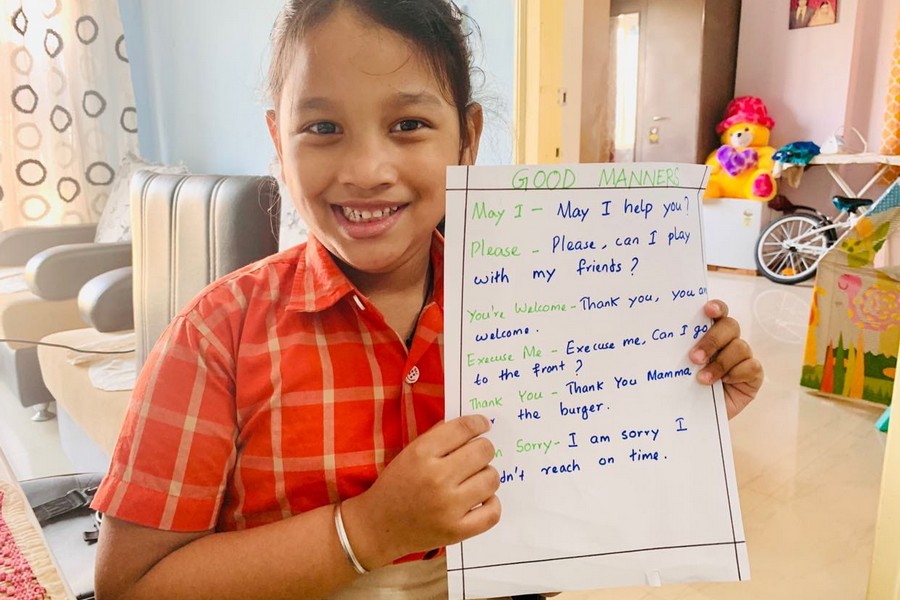 GOOD MANNERS
May I - May I help you?
Please - Please, can I play
with my friends ?
You're Welcome - Thank you, you
welcome.
Execuse Me - Execuse me, Can I go
to the front ?
Thank You - Thank You Mamma
the burger.
Sorry - I am sorry I
reach on time.